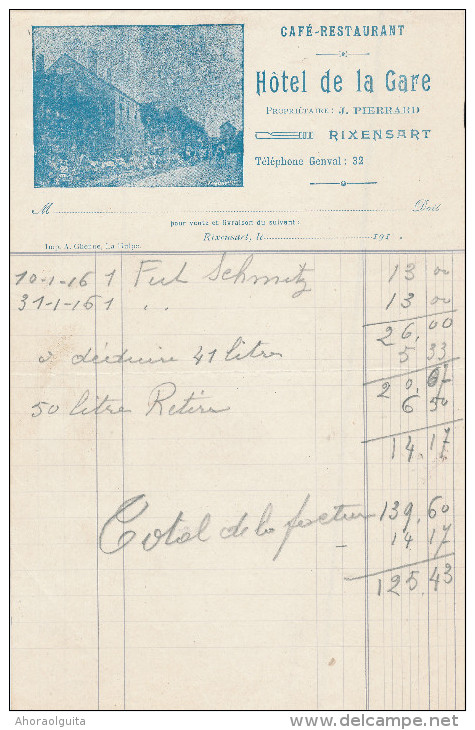 CAFÉ-RESTAURANT
Hôtel de la Gare
PROPRIÉTAIRE : J. PIERRARD
RIXENSART
Téléphone Genval : 32
M Doit
pour vente et livraison du suivant :
Rixensart, le 191
Imp. A. La Hulpe.
10-1-16 1 Fut Schmitz 13 00
31-1-16 1 . . 13 00
26,00
a déduire 41 litres 5 33
20,67
50 litre Retire 6 50
14.17
Total de la factur 139,60
- 14 17
125,43
Ahoraolguita
www.delcampe.net